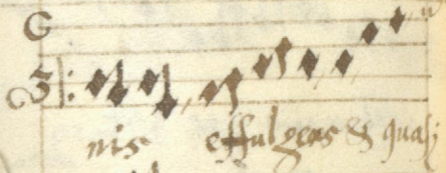 G
nis effulgens & quasi